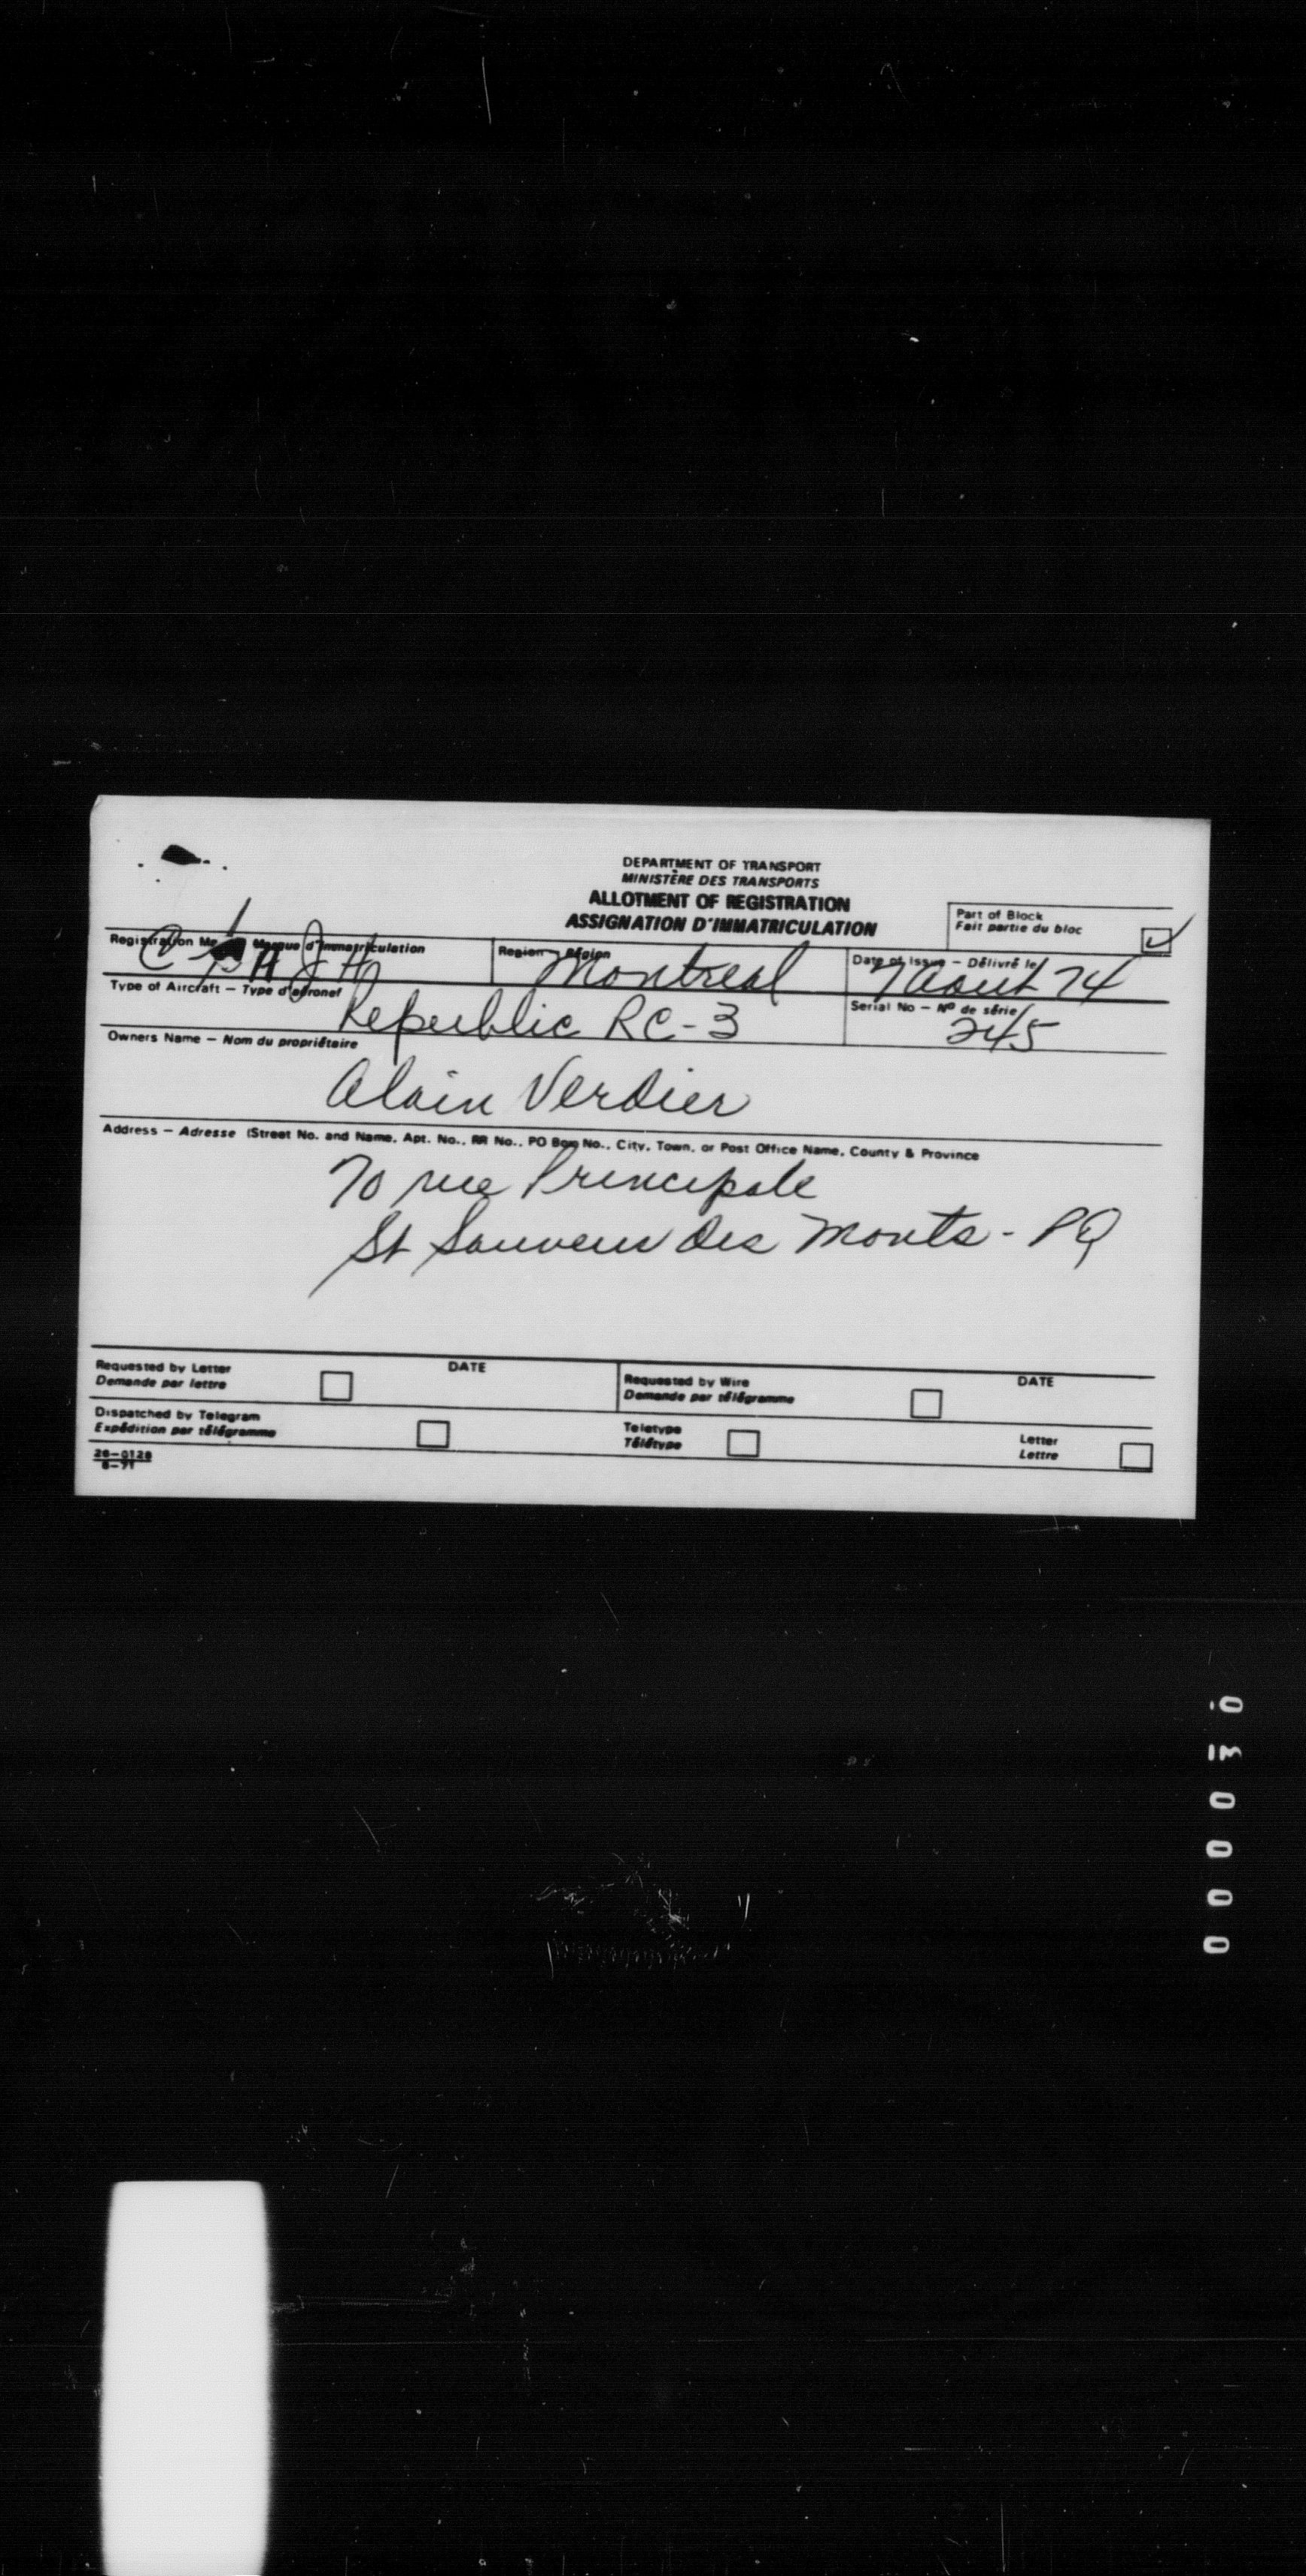 DEPARTMENT OF TRANSPORT
MINISTÈRE DES TRANSPORTS
ALLOTMENT OF REGISTRATION
ASSIGNATION D'IMMATRICULATION
Part of Block
Fait partie du bloc
Registration Marque d'immatriculation
Region – Région
Montreal
Date of Issue – Délivré le
7 Aout 74
Type of Aircraft – Type d'aéronef
Republic RC-3
Serial No – Nº de série
245
Owners Name – Nom du propriétaire
Alain Verdier
Address – Adresse (Street No. and Name, Apt. No., RR No., PO Box No., City, Town, or Post Office Name, County & Province
70 rue Principale
St Sauveur des Monts - PQ
Requested by Letter
Demande par lettre
DATE
Requested by Wire
Demande par télégramme
DATE
Dispatched by Telegram
Expédition par télégramme
Teletype
Télétype
Letter
Lettre
26-0128
6-71
000030